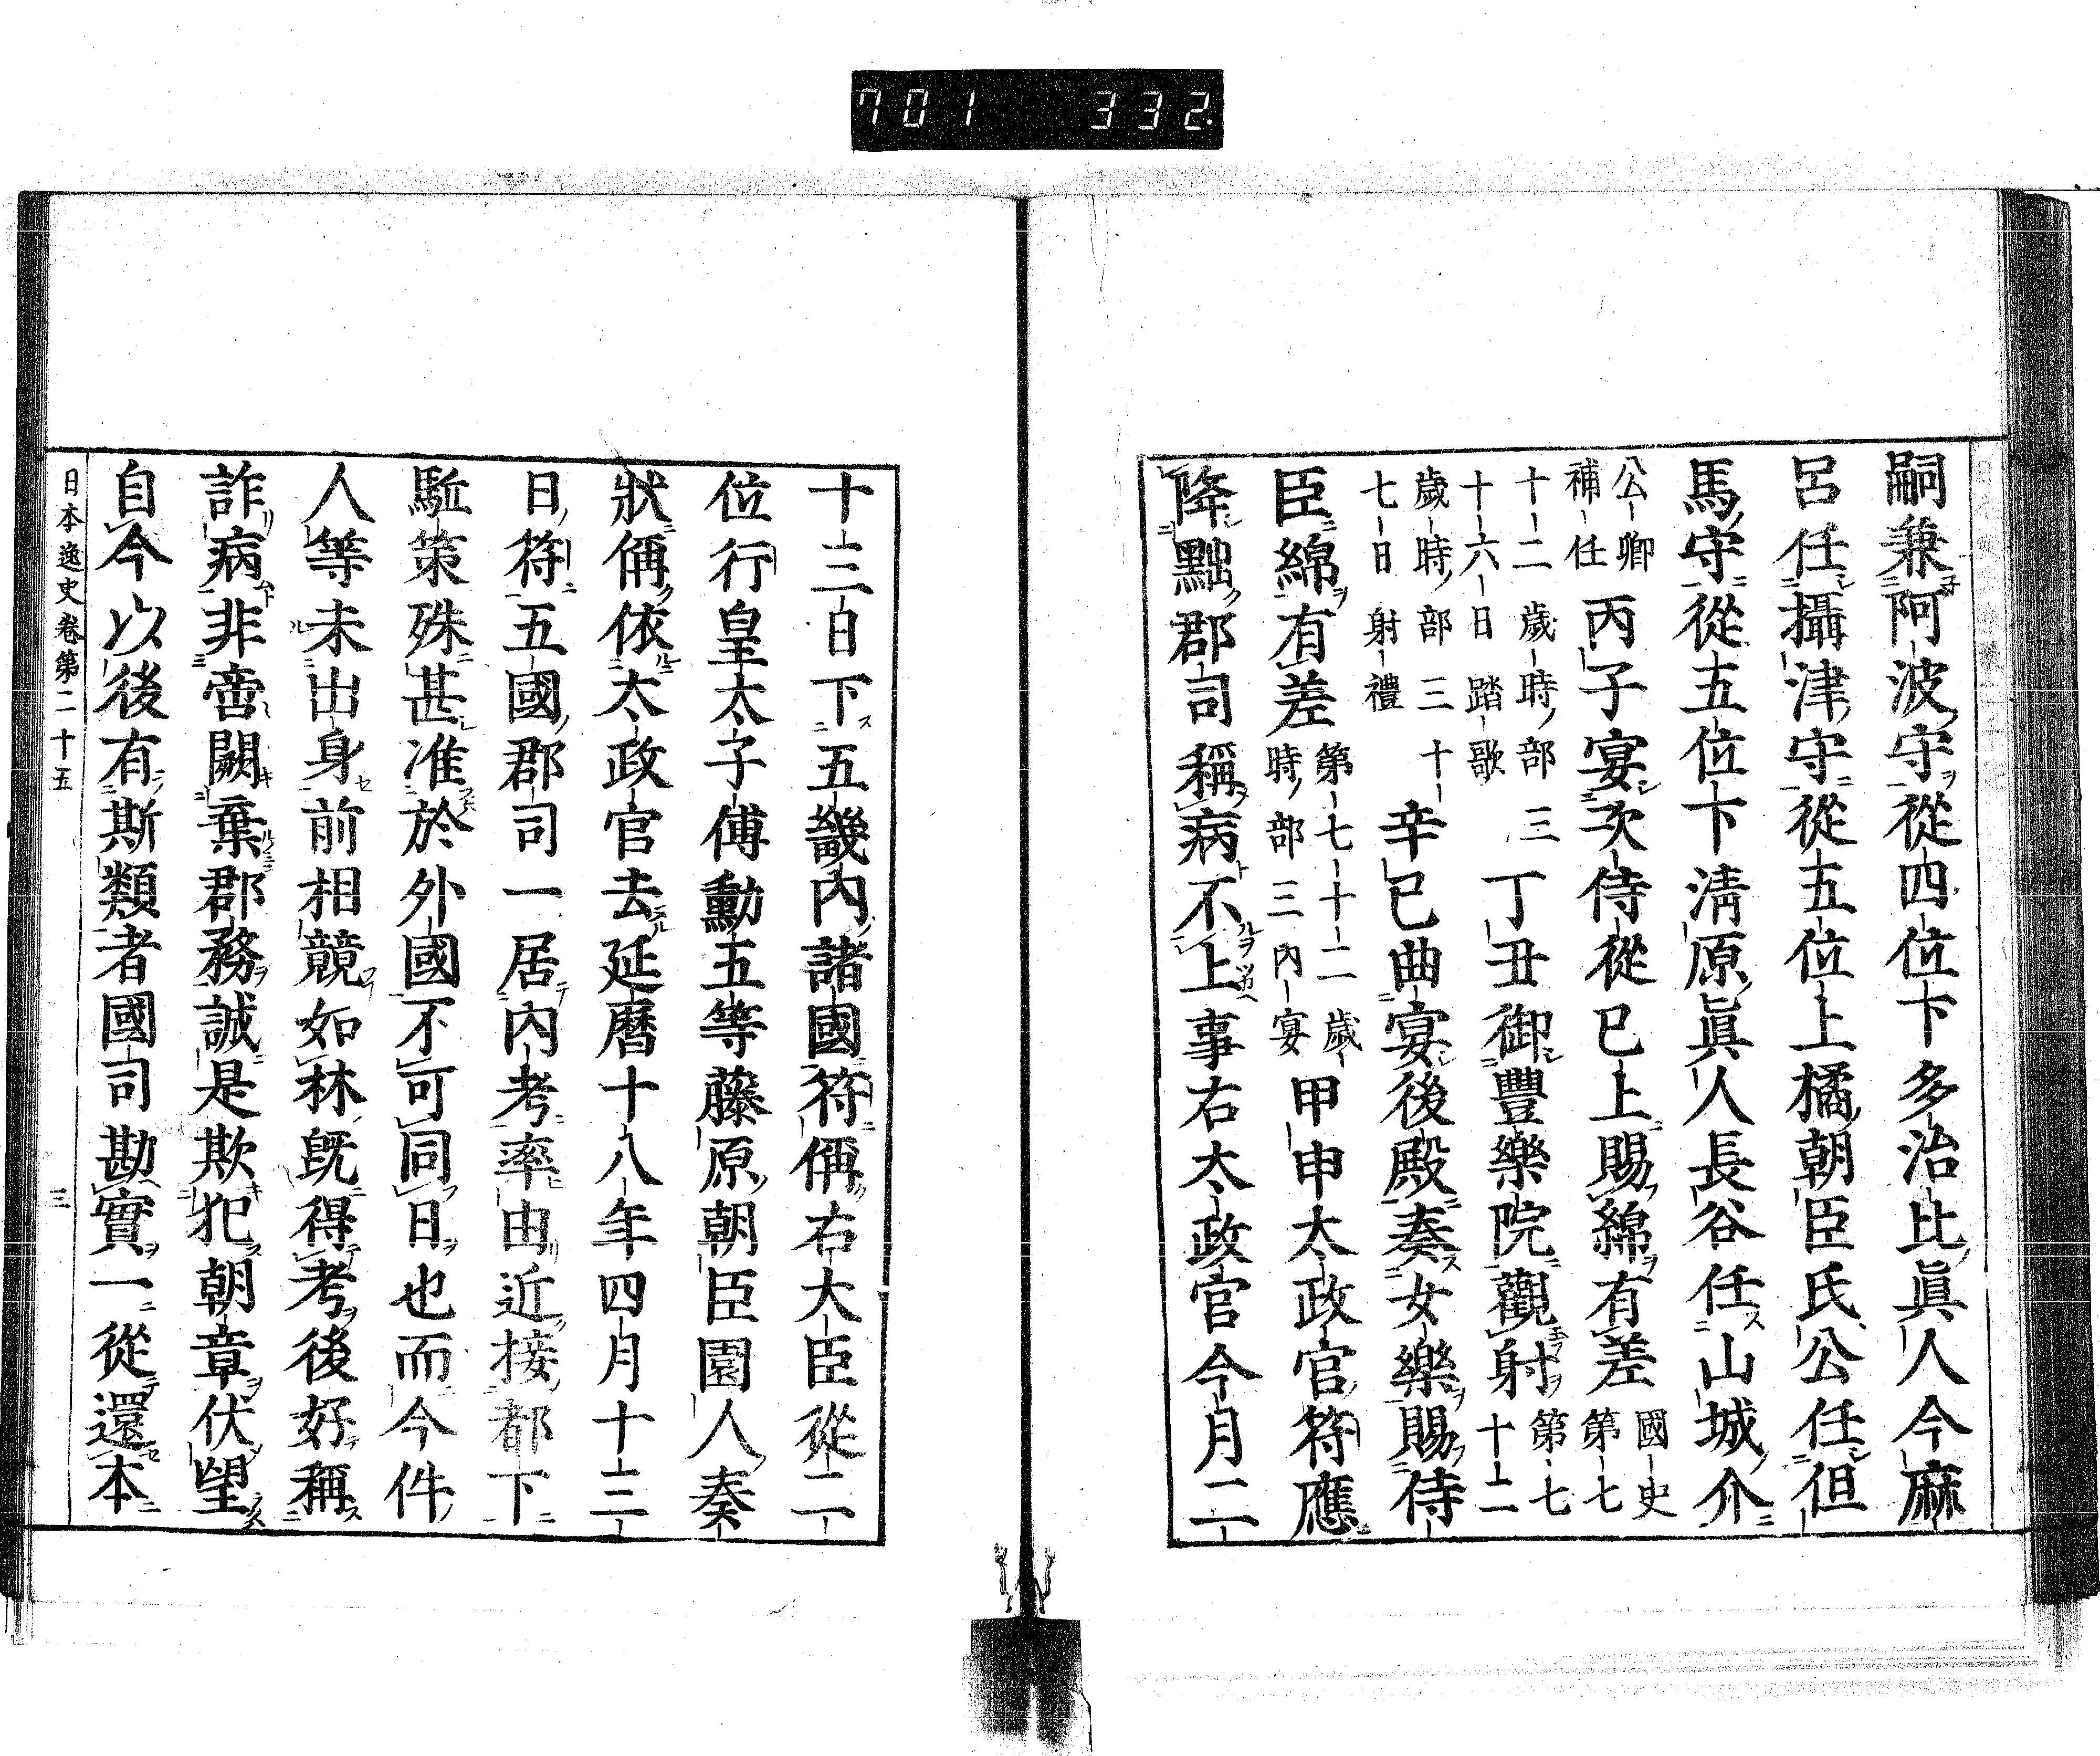 701 332.
嗣兼阿波守從四位下多治比眞人今麻
呂任攝津守從五位上橘朝臣氏公任但
馬守從五位下淸原眞人長谷任山城介
公卿補任 丙子宴次侍從已上賜綿有差 國史第七
十二歲時部三十六日踏歌 丁丑御豐樂院觀射 第七十二
歲時部三十七日射禮 辛巳曲宴後殿奏女樂賜侍
臣綿有差 第七十二歲時部三內宴 甲申太政官符應
降黜郡司稱病不上事右太政官今月二
十三日下五畿內諸國符偁右大臣從二
位行皇太子傅勳五等藤原朝臣園人奏
狀偁依太政官去延曆十八年四月十三
日符五國郡司一居內考率由近接都下
駈策殊甚准於外國不可同日也而今件
人等未出身前相競如林旣得考後好稱
詐病非啻闕棄郡務誠是欺犯朝章伏望
自今以後有斯類者國司勘實一從還本
日本逸史卷第二十五 三